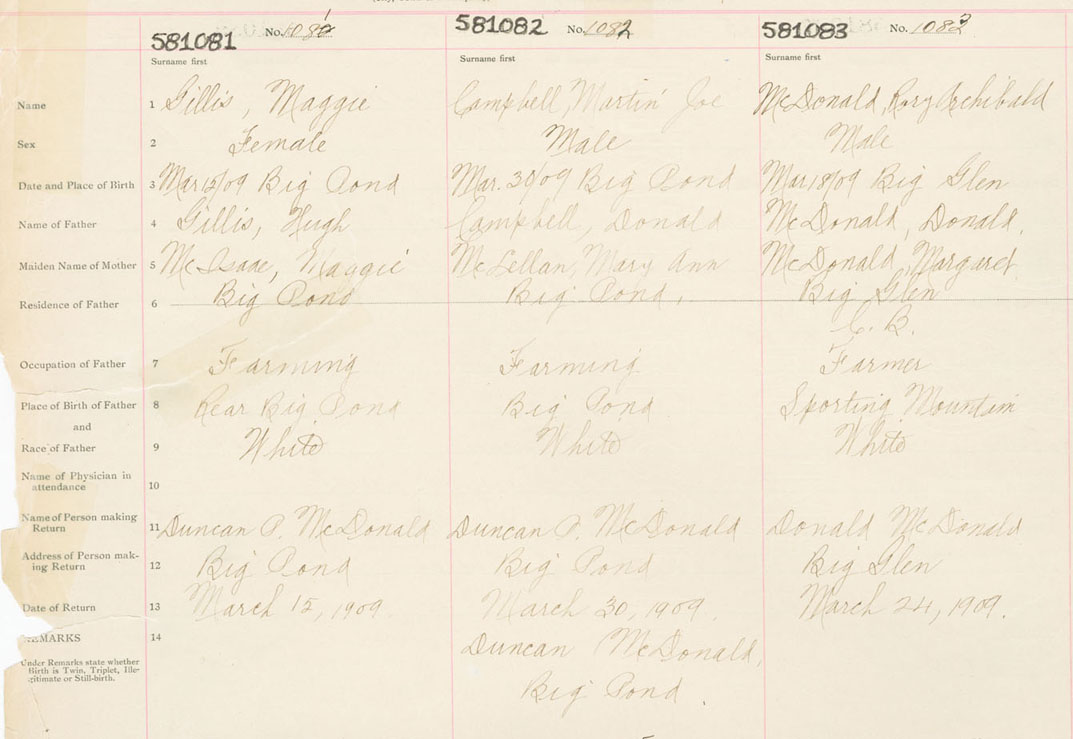 581081 No. 1081 581082 No. 1082 581083 No. 1083
Surname first Surname first Surname first
Name 1 Gillis, Maggie Campbell, Martin Joe McDonald, Rory Archibald
Sex 2 Female Male Male
Date and Place of Birth 3 Mar 12/09 Big Pond Mar. 30/09 Big Pond Mar 18/09 Big Glen
Name of Father 4 Gillis, Hugh Campbell, Donald McDonald, Donald.
Maiden Name of Mother 5 McIsaac, Maggie McLellan, Mary Ann McDonald, Margaret
Residence of Father 6 Big Pond Big Pond, Big Glen
C. B.
Occupation of Father 7 Farming Farming Farmer
Place of Birth of Father 8 Rear Big Pond Big Pond Sporting Mountain
and
Race of Father 9 White White White
Name of Physician in
attendance 10
Name of Person making
Return 11 Duncan P. McDonald Duncan P. McDonald Donald McDonald
Address of Person mak-
ing Return 12 Big Pond Big Pond Big Glen
Date of Return 13 March 15, 1909. March 30, 1909. March 24, 1909.
REMARKS 14
Duncan McDonald,
Under Remarks state whether
Birth is Twin, Triplet, Ille-
gitimate or Still-birth.
Big Pond.